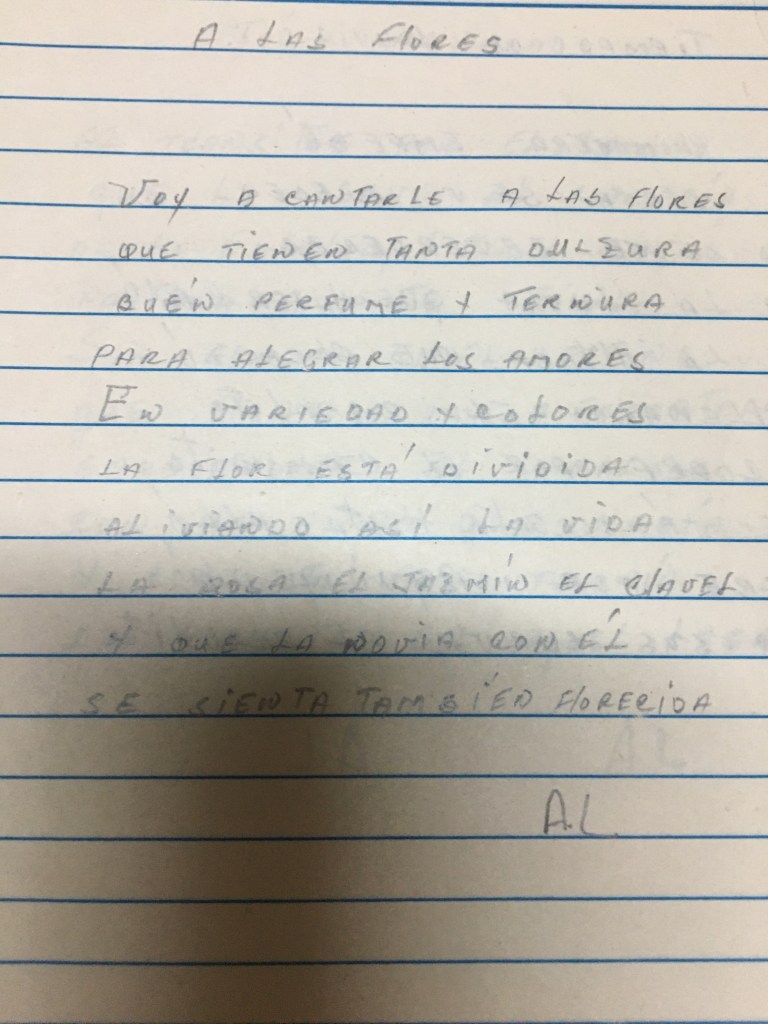 A LAS FLORES
VOY A CANTARLE A LAS FLORES
QUE TIENEN TANTA DULZURA
BUÉN PERFUME Y TERNURA
PARA ALEGRAR LOS AMORES
EN VARIEDAD Y COLORES
LA FLOR ESTÁ DIVIDIDA
ALIVIANDO ASÍ LA VIDA
LA ROSA EL JAZMÍN EL CLAVEL
Y QUE LA NOVIA CON ÉL
SE SIENTA TAMBIÉN FLORECIDA
A.L.